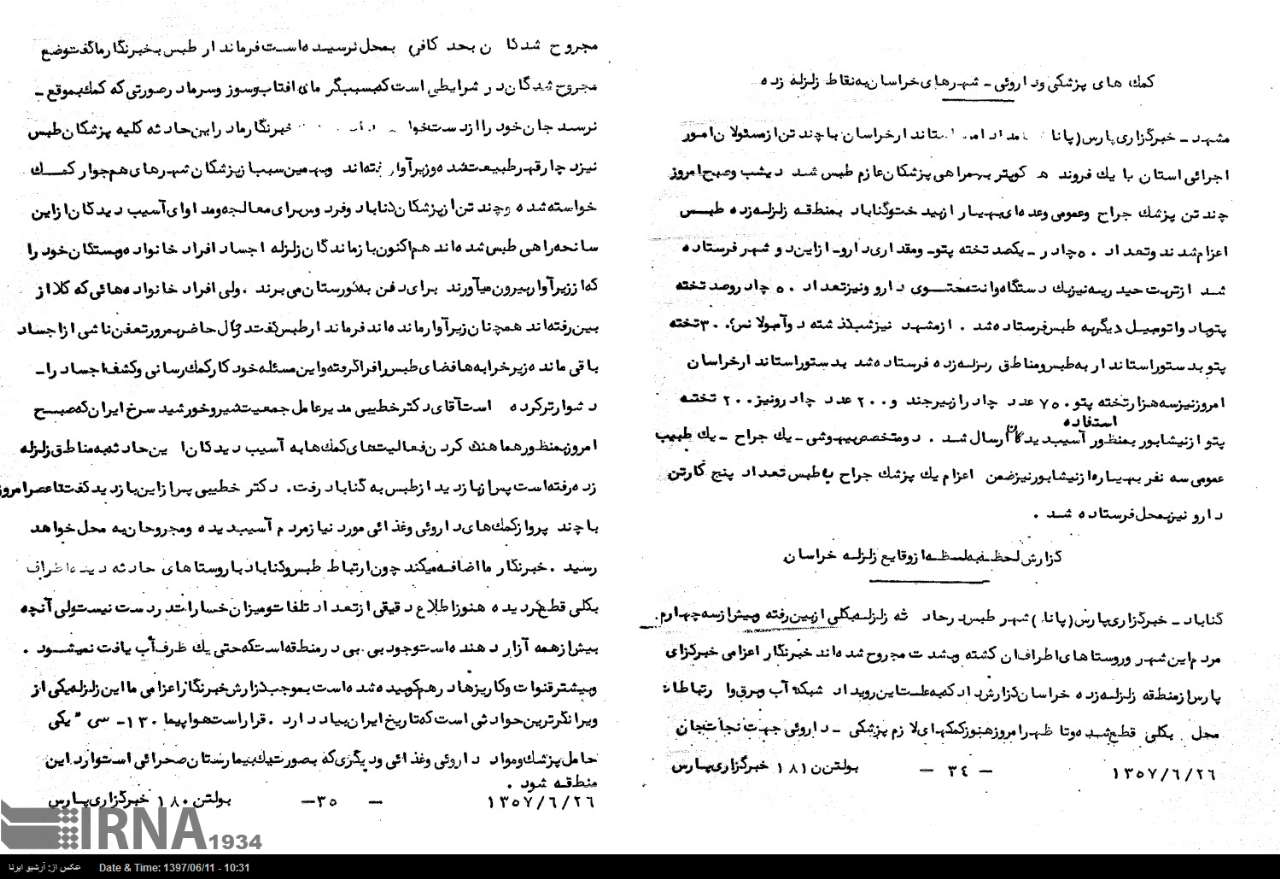 کمك های پزشکی و داروئی - شهرهای خراسان به نقاط زلزله زده
مشهد - خبرگزاری پارس (پانا) بامداد امروز استاندار خراسان با چند تن از مسئولان امور
اجرائی استان با یك فروند هلیکوپتر بهمراهی پزشکان عازم طبس شد دیشب و صبح امروز
چند تن پزشك جراح و عمومی و عده ای بهیار از بیدخت و گناباد بمنطقه زلزله زده طبس
اعزام شدند و تعداد ۵۰ چادر - یکصد تخته پتو - و مقداری دارو - از این دو شهر فرستاده
شد از تربت حیدریه نیز یك دستگاه وانت محتوی دارو و نیز تعداد ۵۰ چادر و صد تخته
پتو با دو اتومبیل دیگر به طبس فرستاده شد . از مشهد نیز شب گذشته دو آمبولانس ۳۰۰ تخته
پتو بدستور استاندار به طبس و مناطق زلزله زده فرستاده شد بدستور استاندار خراسان
امروز نیز سه هزار تخته پتو ۷۵۰ عدد چادر از بیرجند و ۲۰۰ عدد چادر و نیز ۲۰۰ تخته
پتو از نیشابور بمنظور استفاده آسیب دیدگان ارسال شد . دو متخصص بیهوشی - یك جراح - یك طبیب
عمومی سه نفر بهیاره از نیشابور نیز ضمن اعزام یك پزشك جراح به طبس تعداد پنج کارتن
دارو نیز بمحل فرستاده شد .
گزارش لحظه به لحظه از وقایع زلزله خراسان
گناباد - خبرگزاری پارس (پانا) شهر طبس در حادثه زلزله بکلی از بین رفته و بیش از سه چهارم
مردم این شهر و روستاهای اطراف آن کشته و بشدت مجروح شده اند خبرنگار اعزامی خبرگزای
پارس از منطقه زلزله زده خراسان گزارش داد که به علت این رویداد شبکه آب و برق و ارتباطات
محل بکلی قطع شده و تا ظهر امروز هنوز کمکهای لازم پزشکی - داروئی جهت نجات جان
۱۳۵۷/۶/۲۶ — ۳٤ — بولتن ۱۸۱ خبرگزاری پارس
مجروح شدگان بحد کافی بمحل نرسیده است فرماندار طبس بخبرنگار ما گفت وضع
مجروح شدگان در شرایطی است که بسبب گرمای آفتاب و سوز و سرما در صورتی که کمك بموقع -
نرسد جان خود را از دست خواهند داد خبرنگار ما در این حادثه کلیه پزشکان طبس
نیز دچار قهر طبیعت شده و زیر آوار رفته اند و بهمین سبب از پزشکان شهرهای هم جوار کمك
خواسته شده و چند تن از پزشکان گناباد و فردوس برای معالجه و مداوای آسیب دیدگان از این
سانحه راهی طبس شده اند هم اکنون بازماندگان زلزله اجساد افراد خانواده و بستگان خود را
که از زیر آوار بیرون میآورند برای دفن به گورستان می برند . ولی افراد خانواده هائی که کلا از
بین رفته اند همچنان زیر آوار مانده اند فرماندار طبس گفت در حال حاضر بمرور تعفن ناشی از اجساد
باقی مانده زیر خرابه ها فضای طبس را فرا گرفته و این مسئله خود کار کمك رسانی و کشف اجساد را -
دشوارتر کرده است آقای دکتر خطیبی مدیر عامل جمعیت شیر و خورشید سرخ ایران که صبح
امروز بمنظور هماهنگ کردن فعالیت های کمك ها به آسیب دیدگان این حادثه به مناطق زلزله
زده رفته است پس از بازدید از طبس به گناباد رفت . دکتر خطیبی پس از این بازدید گفت تا عصر امروز
با چند پرواز کمك های داروئی و غذائی مورد نیاز مردم آسیب دیده و مجروحان به محل خواهد
رسید . خبرنگار ما اضافه میکند چون ارتباط طبس و گناباد با روستاهای حادثه دیده اطراف
بکلی قطع گردیده هنوز اطلاع دقیقی از تعداد تلفات و میزان خسارات در دست نیست ولی آنچه
بیش از همه آزار دهنده است وجود بی بی در منطقه است که حتی یك ظرف آب یافت نمیشود .
و بیشتر قنوات و کاریزها درهم کوبیده شده است بموجب گزارش خبرنگار اعزامی ما این زلزله یکی از
ویرانگرترین حوادثی است که تاریخ ایران بیاد دارد . قرار است هواپیما ۱۳۰ - سی " یکی
حامل پزشك و مواد داروئی و غذائی و دیگری که بصورت یك بیمارستان صحرائی است وارد این
منطقه شود .
۱۳۵۷/۶/۲۶ — ۳۵ — بولتن ۱۸۰ خبرگزاری پارس
IRNA 1934
عکس از: آرشیو ایرنا Date & Time: 1397/06/11 - 10:31